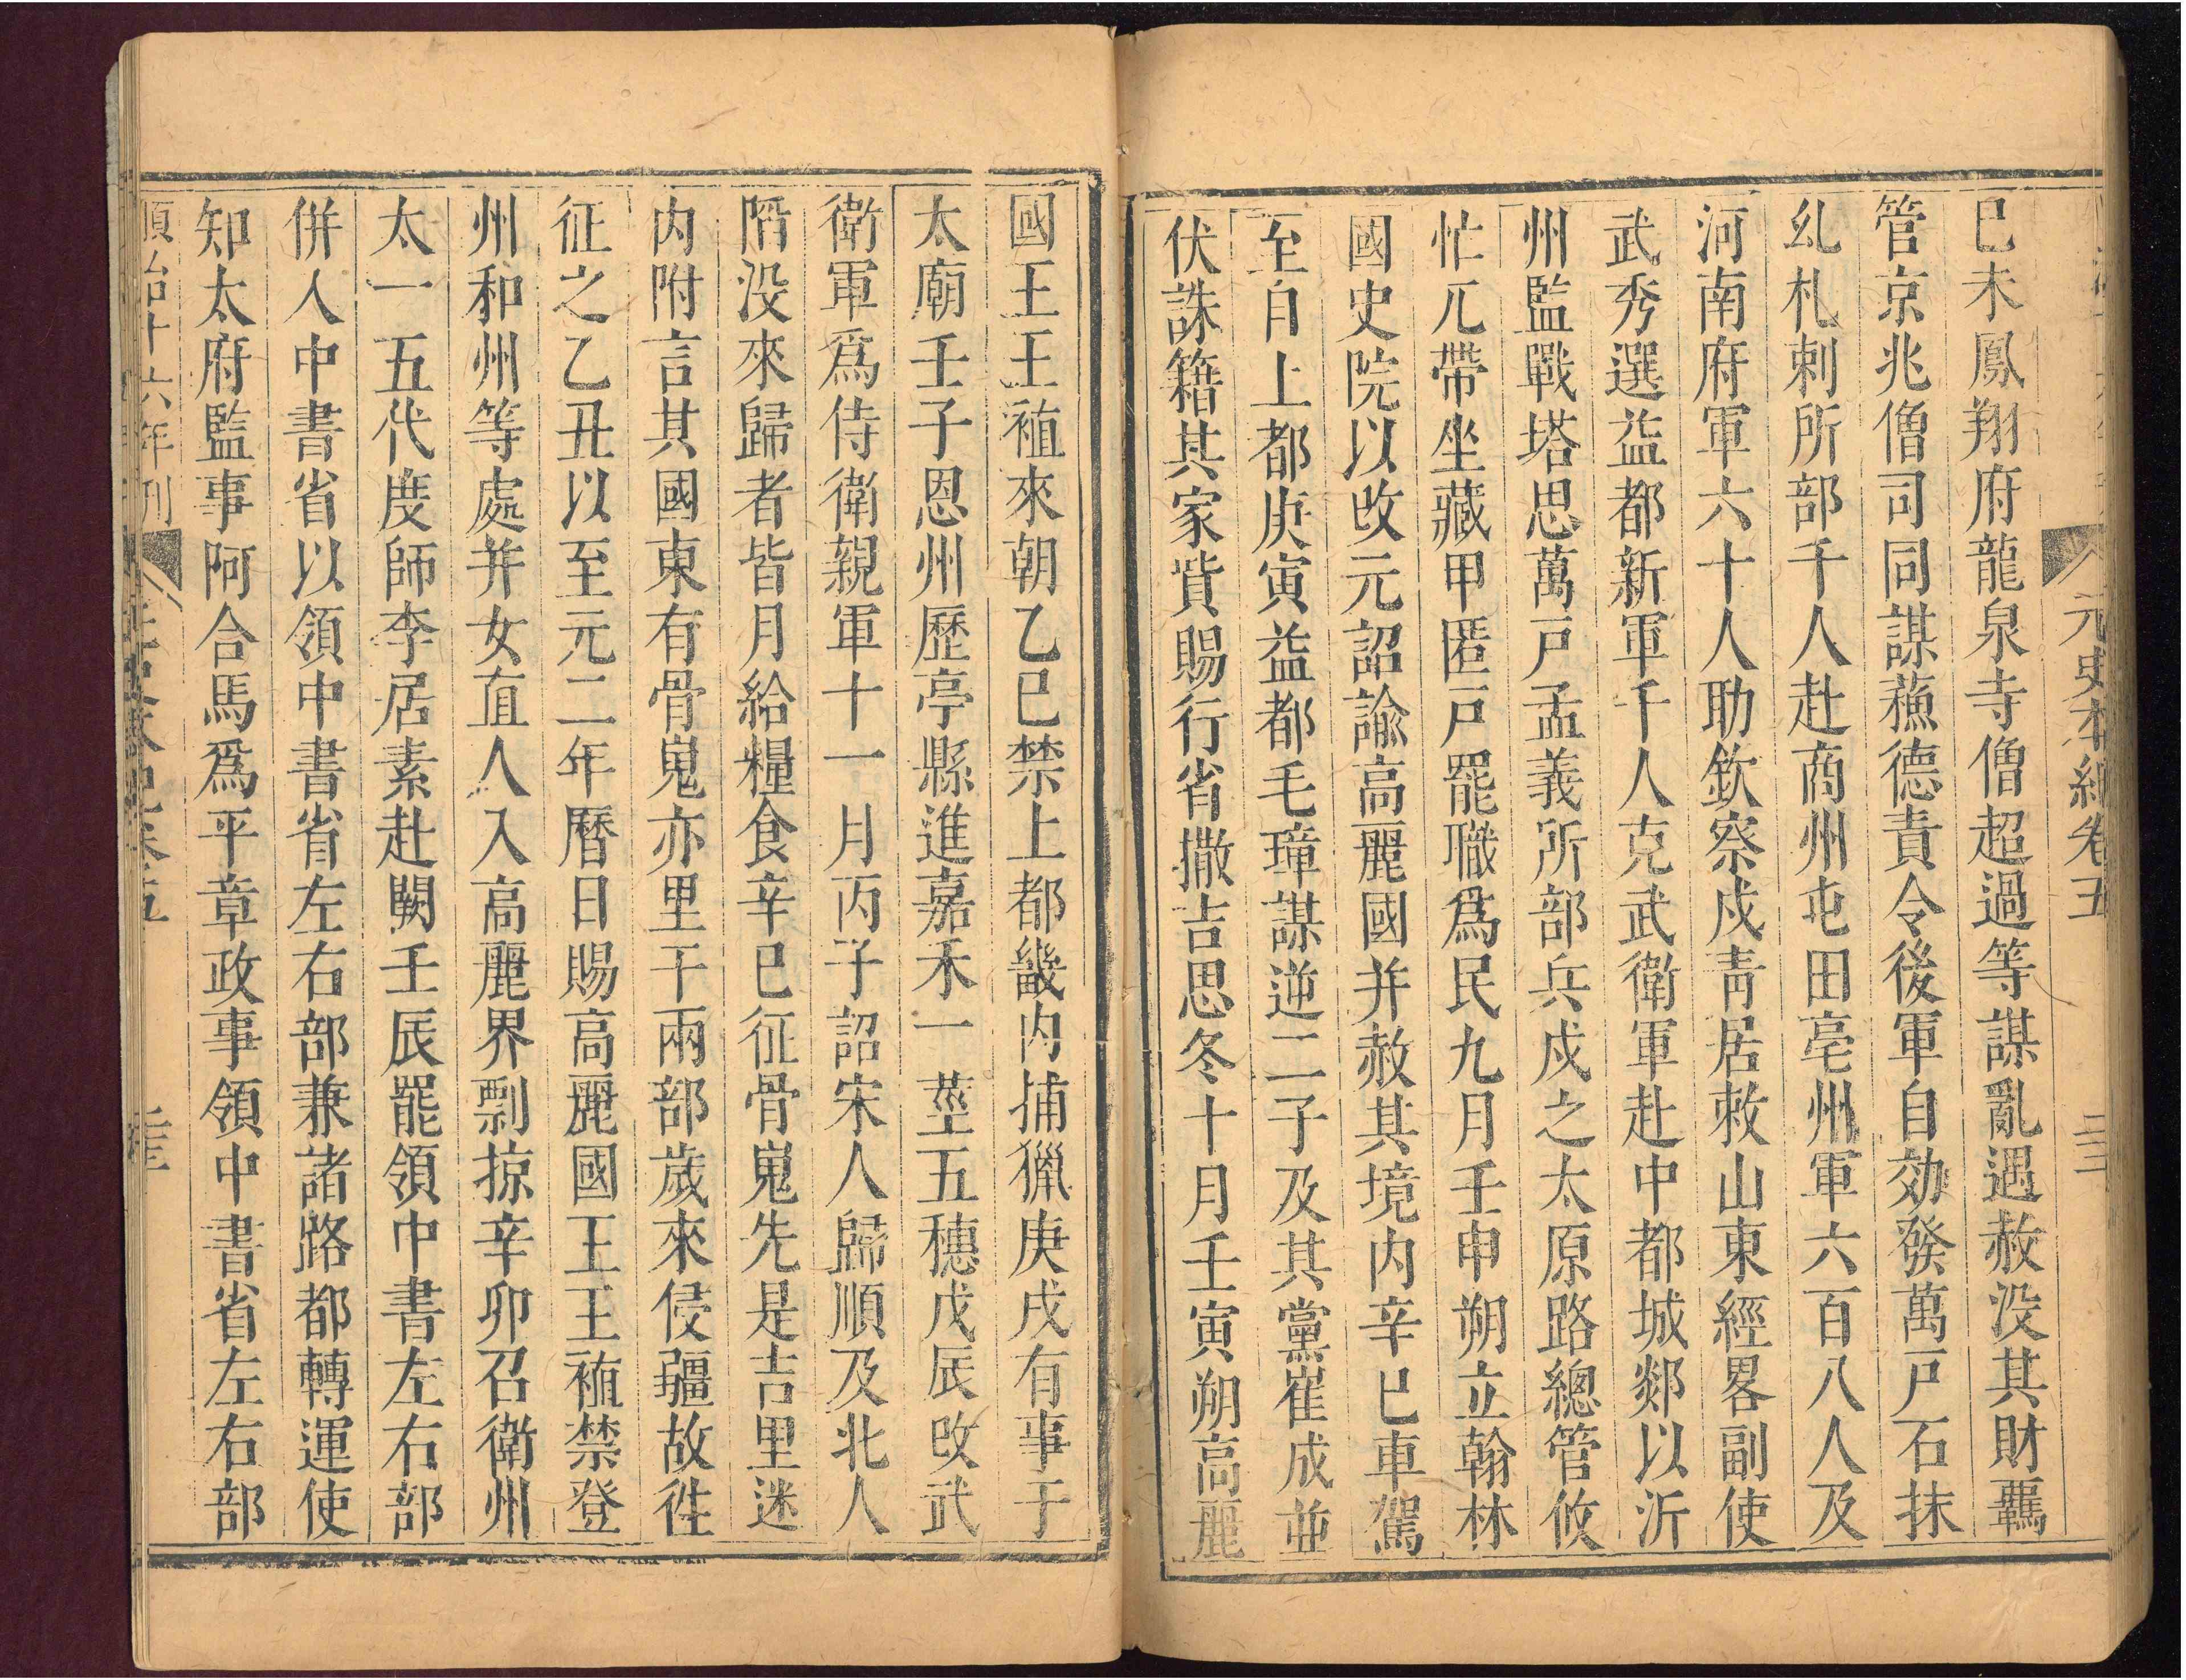 元史本紀卷五
二十二
巳未鳳翔府龍泉寺僧超過等謀亂遇赦没其財羈
管京兆僧司同謀蘓德責令後軍自効發萬戸石抹
糺札剌所部千人赴商州屯田亳州軍六百八人及
河南府軍六十人助欽察戍青居敕山東經畧副使
武秀選益都新軍千人克武衛軍赴中都城郯以沂
州監戰塔思萬戸孟義所部兵戍之太原路總管攸
忙兀帶坐藏甲匿戸罷職爲民九月壬申朔立翰林
國史院以改元詔諭高麗國并赦其境内辛巳車駕
至自上都庚寅益都毛璋謀逆二子及其黨崔成並
伏誅籍其家貲賜行省撒吉思冬十月壬寅朔高麗
國王王禃來朝乙巳禁上都畿内捕獵庚戌有事于
太廟壬子恩州歷亭縣進嘉禾一莖五穗戊辰改武
衛軍爲侍衛親軍十一月丙子詔宋人歸順及北人
陷没來歸者皆月給糧食辛巳征骨嵬先是吉里迷
内附言其國東有骨嵬亦里于兩部歲來侵疆故徃
征之乙丑以至元二年曆日賜高麗國王王禃禁登
州和州等處并女直人入高麗界剽掠辛卯召衛州
太一五代度師李居素赴闕壬辰罷領中書左右部
併入中書省以領中書省左右部兼諸路都轉運使
知太府監事阿合馬爲平章政事領中書省左右部
順治十六年刊